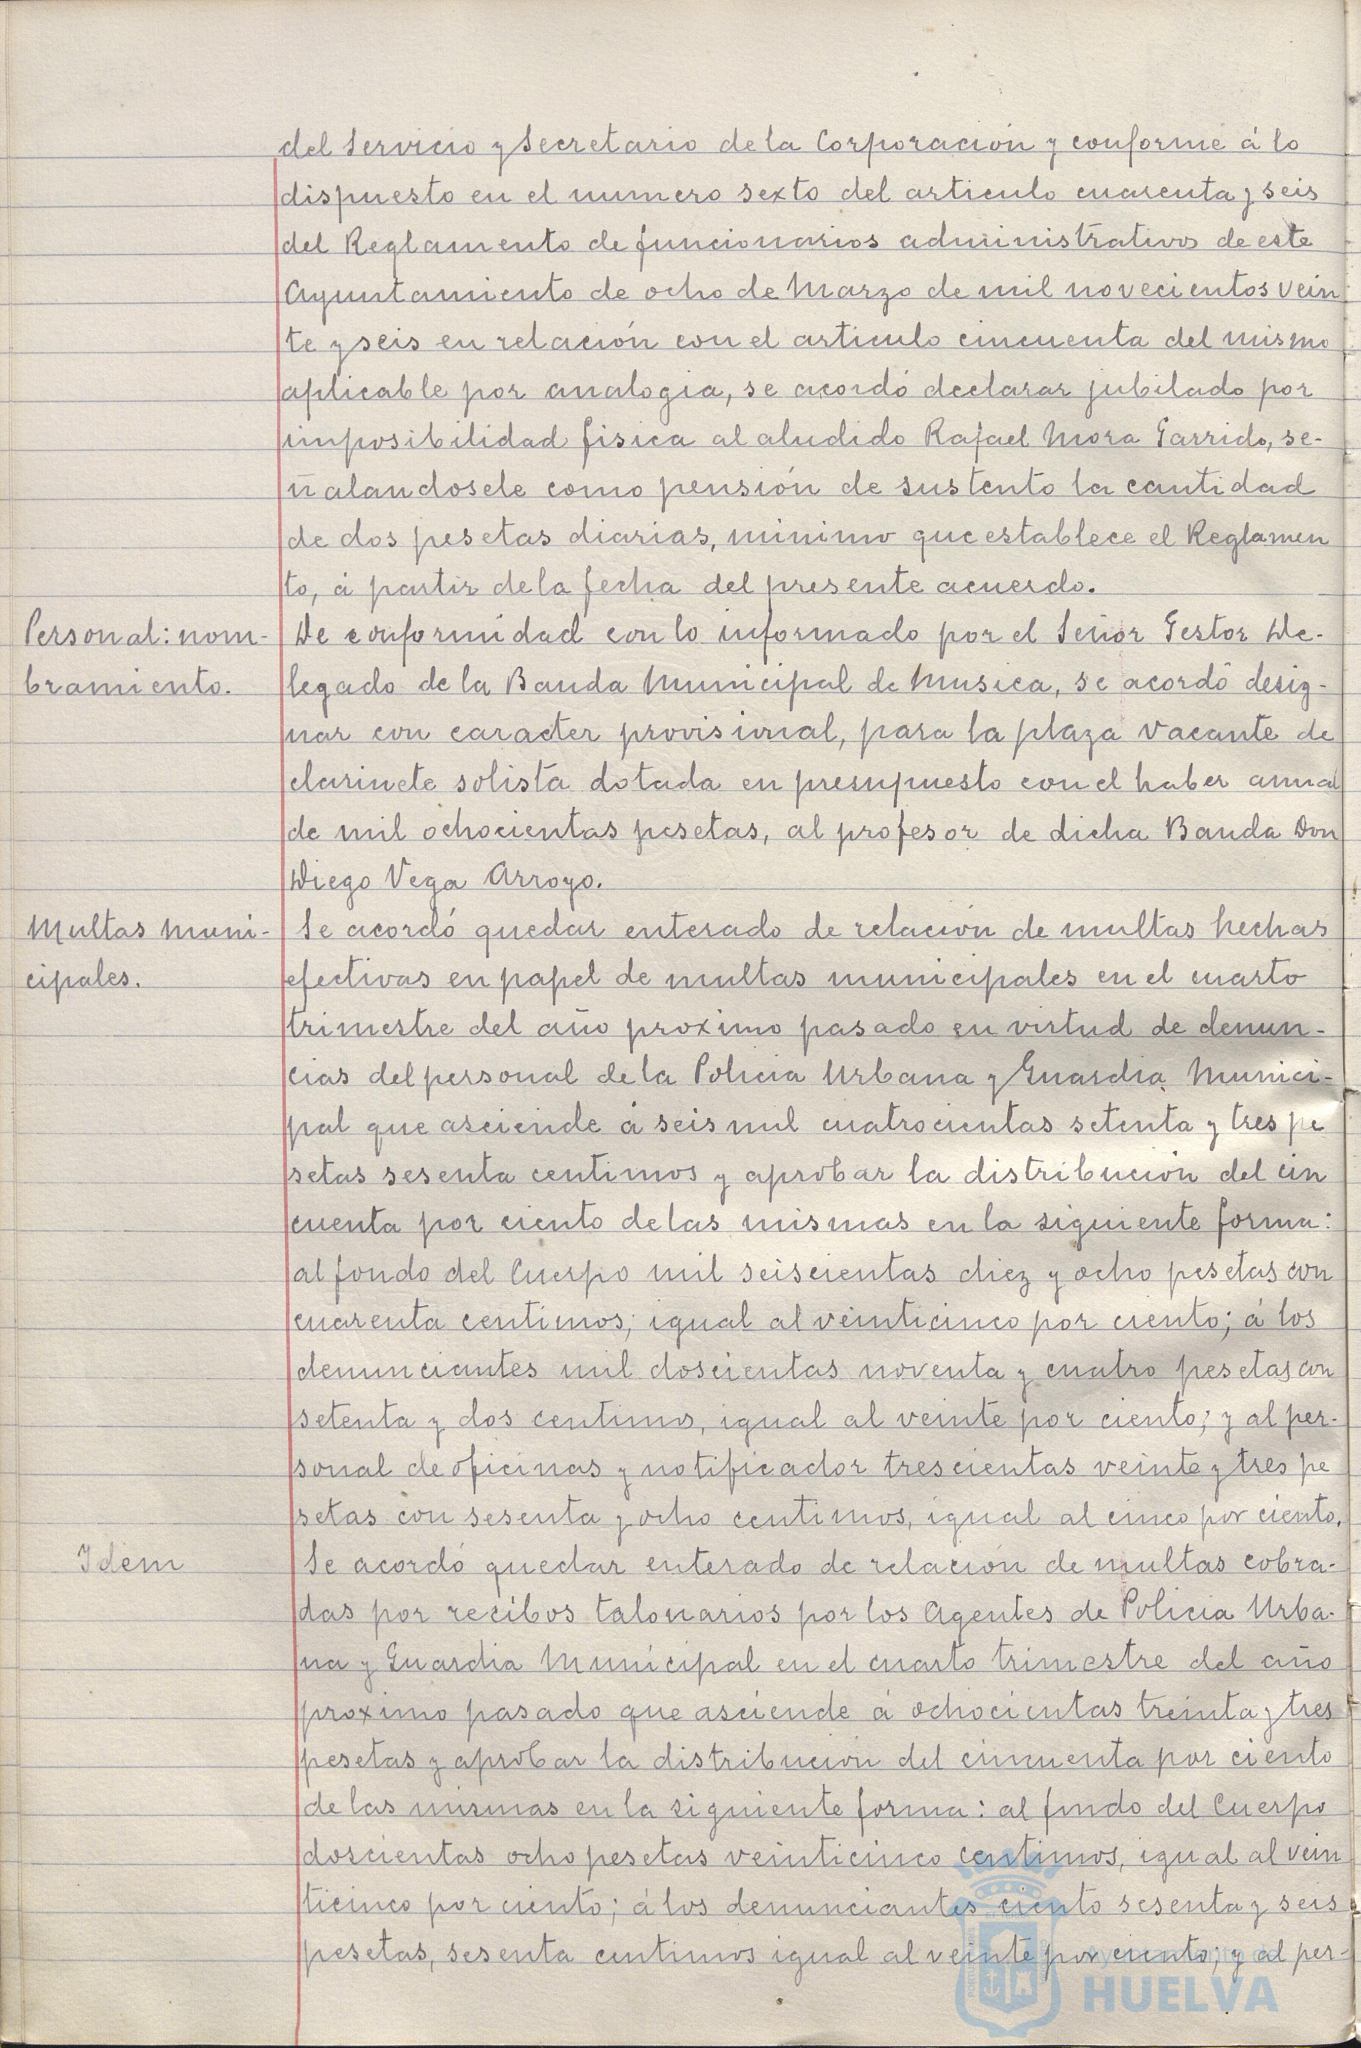 del Servicio y Secretario de la Corporación y conforme á lo
dispuesto en el numero sexto del articulo cuarenta y seis
del Reglamento de funcionarios administrativos de este
Ayuntamiento de ocho de Marzo de mil novecientos vein
te y seis en relación con el articulo cincuenta del mismo
aplicable por analogia, se acordó declarar jubilado por
imposibilidad fisica al aludido Rafael Mora Garrido, se-
ñalandosele como pensión de sustento la cantidad
de dos pesetas diarias, minimo que establece el Reglamen
to, á partir de la fecha del presente acuerdo.
Personal: nom-
bramiento.
De conformidad con lo informado por el Señor Gestor De-
legado de la Banda Municipal de Musica, se acordó desig-
nar con caracter provisional, para la plaza vacante de
clarinete solista dotada en presupuesto con el haber anual
de mil ochocientas pesetas, al profesor de dicha Banda Don
Diego Vega Arroyo.
Multas muni-
cipales.
Se acordó quedar enterado de relación de multas hechas
efectivas en papel de multas municipales en el cuarto
trimestre del año proximo pasado en virtud de denun-
cias del personal de la Policia Urbana y Guardia Munici-
pal que asciende á seis mil cuatrocientas setenta y tres pe
setas sesenta centimos y aprobar la distribución del cin
cuenta por ciento de las mismas en la siguiente forma:
al fondo del Cuerpo mil seiscientas diez y ocho pesetas con
cuarenta centimos; igual al veinticinco por ciento; á los
denunciantes mil doscientas noventa y cuatro pesetas con
setenta y dos centimos, igual al veinte por ciento; y al per-
sonal de oficinas y notificador trescientas veinte y tres pe
setas con sesenta y ocho centimos, igual al cinco por ciento.
Idem
Se acordó quedar enterado de relación de multas cobra-
das por recibos talonarios por los Agentes de Policia Urba-
na y Guardia Municipal en el cuarto trimestre del año
proximo pasado que asciende á ochocientas treinta y tres
pesetas y aprobar la distribución del cincuenta por ciento
de las mismas en la siguiente forma: al fondo del Cuerpo
doscientas ocho pesetas veinticinco centimos, igual al vein
ticinco por ciento; á los denunciantes ciento sesenta y seis
pesetas, sesenta centimos igual al veinte por ciento; y al per-
Ayuntamiento de
HUELVA